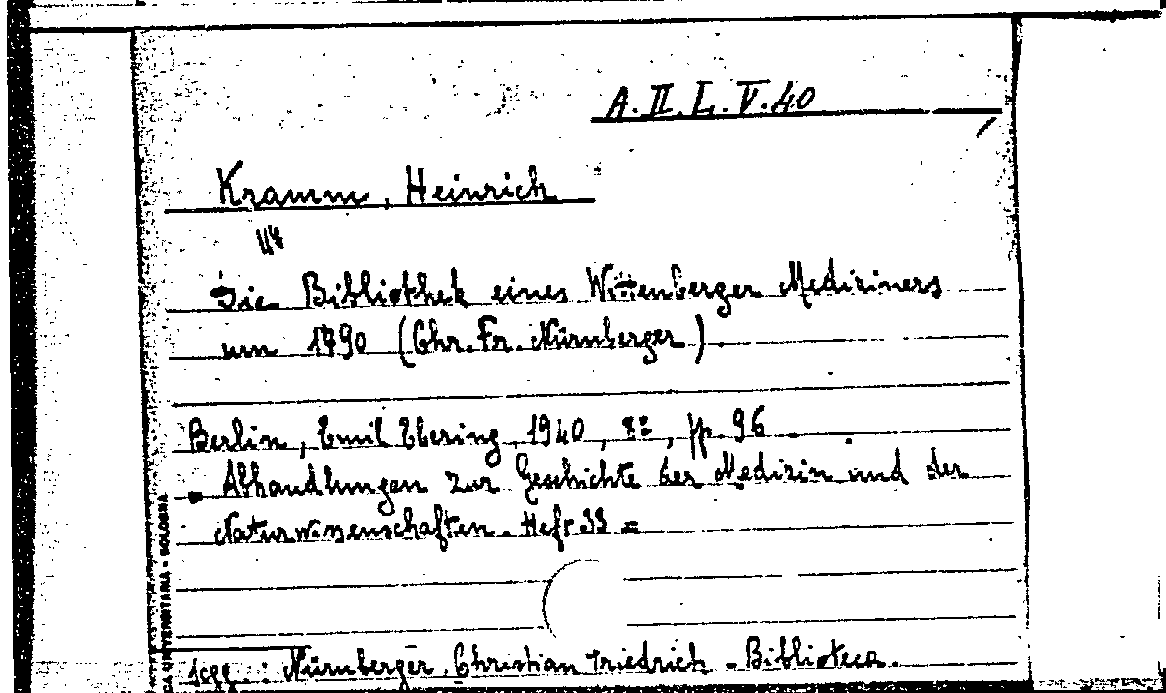 A. II. L. V. 40
Kramm, Heinrich
Die Bibliothek eines Wittenberger Mediziners
um 1790 (Chr. Fr. Nürnberger).
Berlin, Emil Ebering, 1940, 8º, pp. 96
Abhandlungen zur Geschichte der Medizin und der
Naturwissenschaften. Heft 33 =
sogg. : Nürnberger, Christian Friedrich - Biblioteca.
CA UNIVERSITARIA - BOLOGNA